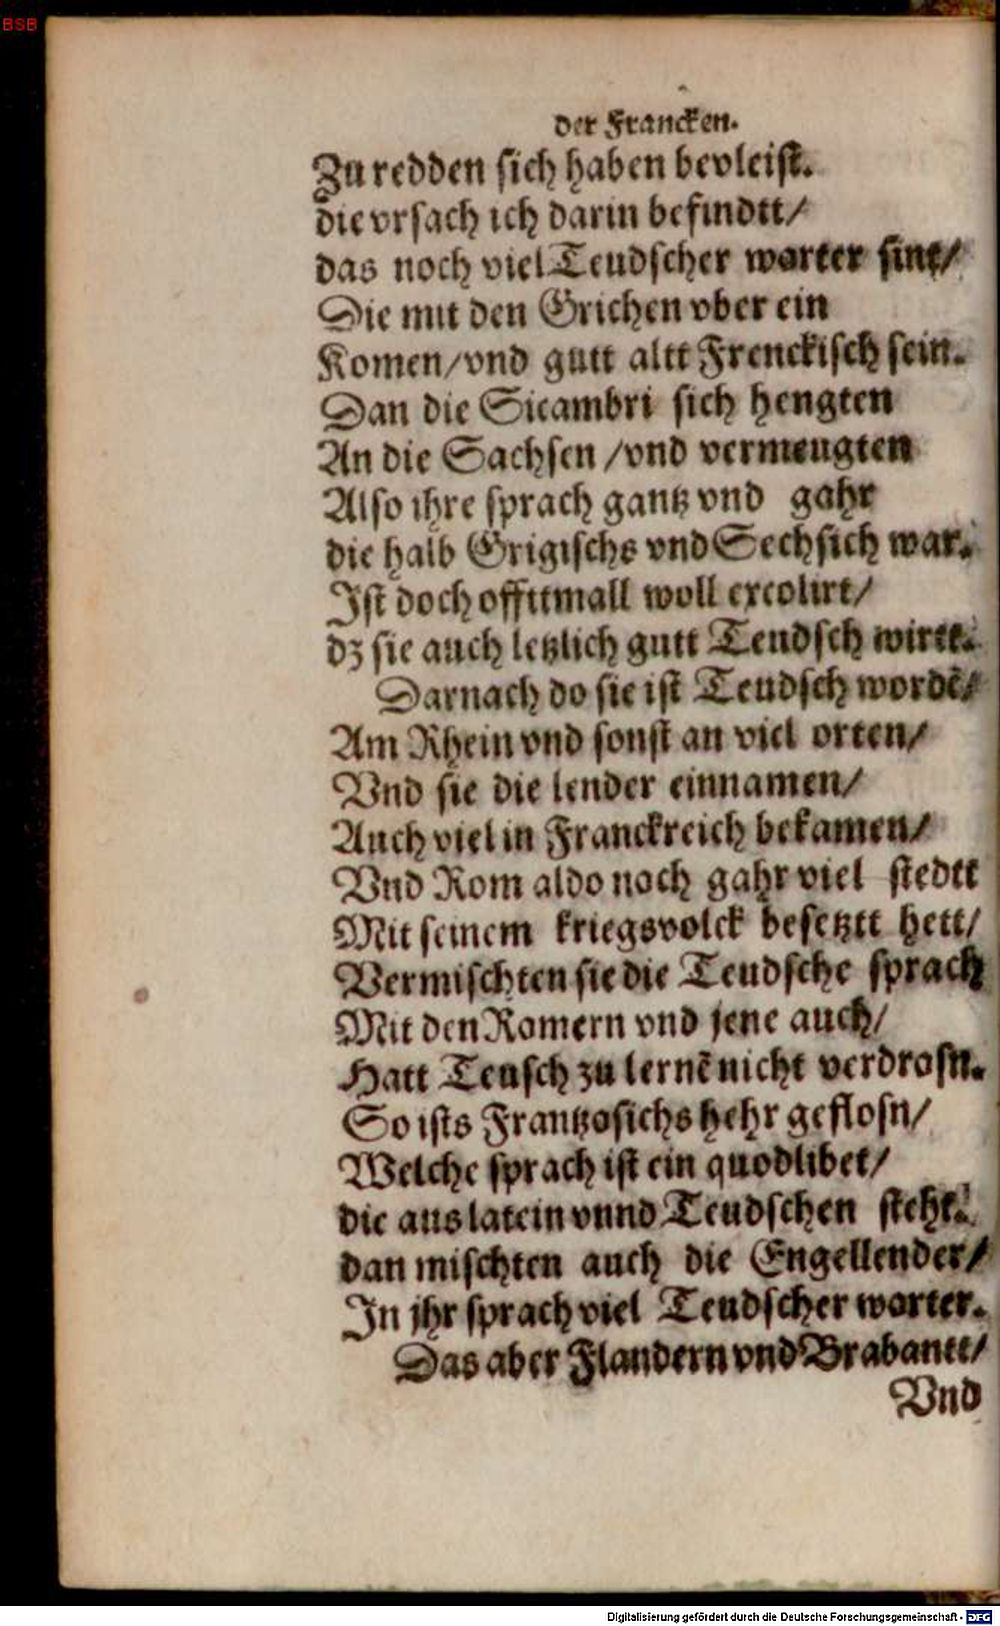 BSB
der Francken.
Zu redden sich haben bevleist.
die vrsach ich darin befindtt/
das noch viel Teudscher worter sint/
Die mit den Grichen vber ein
Komen/vnd gutt altt Frenckisch sein.
Dan die Sicambri sich hengten
An die Sachsen /vnd vermeugten
Also ihre sprach gantz vnd gahr
die halb Grigischs vnd Sechsich war.
Ist doch offttmall woll excolirt/
dz sie auch letzlich gutt Teudsch wirtt.
Darnach do sie ist Teudsch wordẽ/
Am Rhein vnd sonst an viel orten/
Vnd sie die lender einnamen/
Auch viel in Franckreich bekamen/
Vnd Rom aldo noch gahr viel stedtt
Mit seinem kriegsvolck besetztt hett/
Vermischten sie die Teudsche sprach
Mit den Romern vnd jene auch/
Hatt Teusch zu lernẽ nicht verdrosn.
So ists Frantzosichs hehr geflosn/
Welche sprach ist ein quodlibet/
die aus latein vnnd Teudschen steht.
dan mischten auch die Engellender/
In jhr sprach viel Teudscher worter.
Das aber Flandern vnd Brabantt/
Vnd
Digitalisierung gefördert durch die Deutsche Forschungsgemeinschaft - DFG